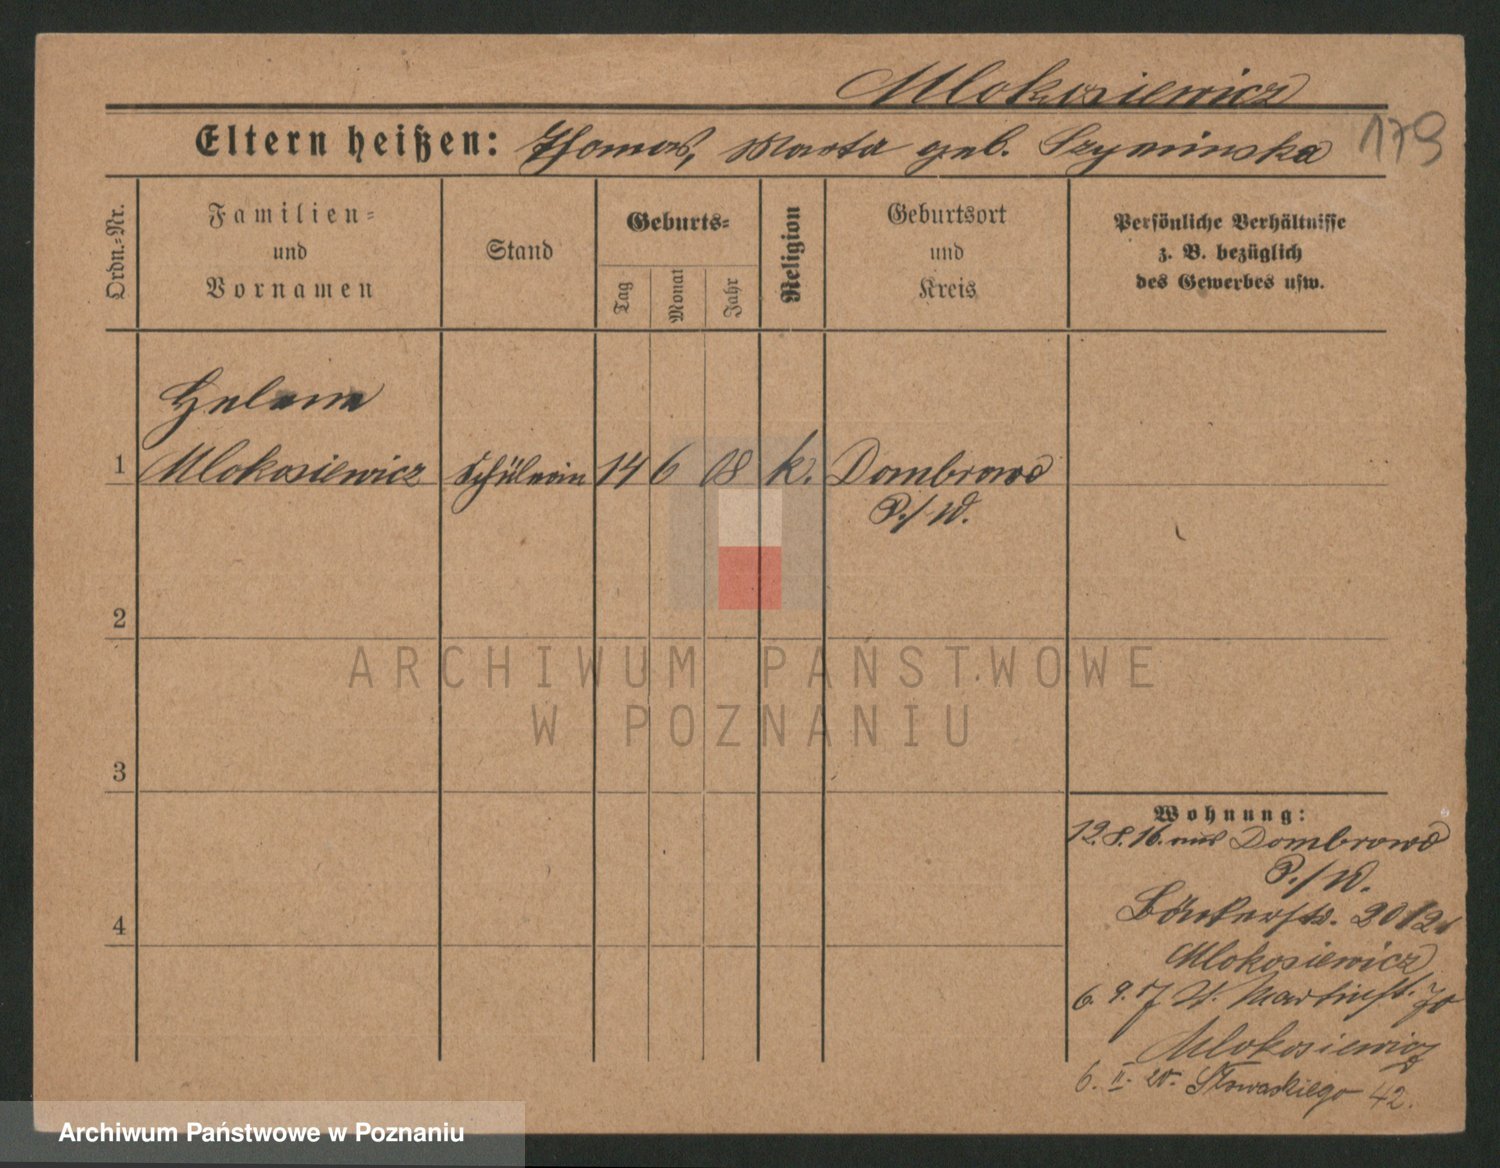 Mlokosiewicz
Eltern heißen: Thomas, Marta geb. Szyminska
179
Ordn.=Nr.
Familien=
und
Vornamen
Stand
Geburts=
Tag
Monat
Jahr
Religion
Geburtsort
und
Kreis
Persönliche Verhältnisse
z. B. bezüglich
des Gewerbes usw.
Helene
1 Mlokosiewicz Schülerin 14 6 08 k. Dombrowo
P./W.
2
ARCHIWUM PAŃSTWOWE
W POZNANIU
3
4
Wohnung:
12.8.16. aus Dombrowo
P./W.
Bäckerstr. 20
Mlokosiewicz
6. 9. 17 St. Martinstr. 70
Mlokosiewicz
6. II. 20. Słowackiego 42.
Archiwum Państwowe w Poznaniu